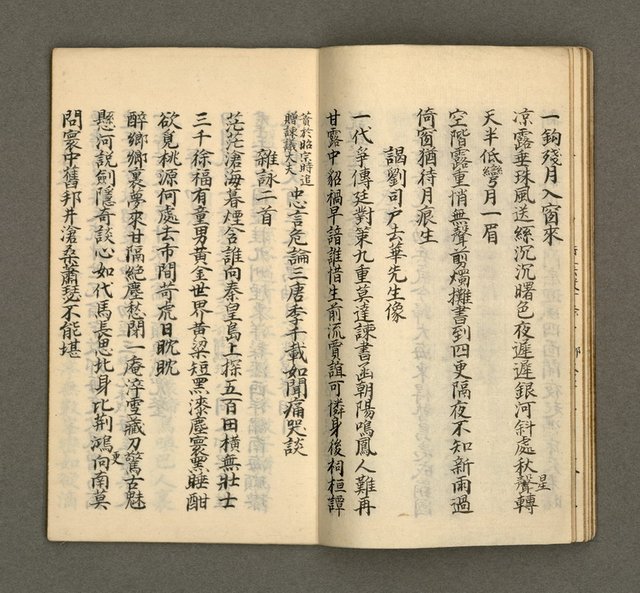 一鈎殘月入窗來
凉露垂珠風送絲沉沉曙色夜遲遲銀河斜處秋聲轉
星
天半低彎月一眉
空階露重悄無聲剪燭攤書到四更隔夜不知新雨過
倚窗猶待月痕生
謁劉司戶去華先生像
一代爭傳廷對策九重莫達諫書函朝陽鳴鳳人難再
甘露中貂禍早諳誰惜生前流賈誼可憐身後祠桓譚
蕢於昭宗時追
贈諫議大夫
忠言危論三唐季千載如聞痛哭談
雜詠二首
茫茫滄海暮煙含誰向秦皇島上探五百田橫無壯士
三千徐福有童男黃金世界黃粱短黑漆塵寰黑睡酣
欲覓桃源何處去市間苛虎日眈眈
醉鄉鄉裏夢來甘隔絕塵愁閉一庵淬雪藏刀驚古魅
懸河說劍隱奇談心如代馬長思北身比荆鴻更向南莫
問寰中舊邦井滄桑蕭瑟不能堪